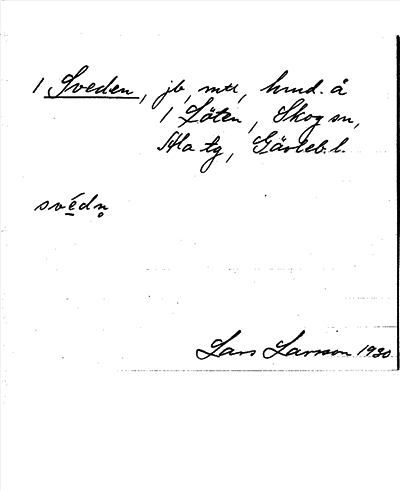 1 Sveden, jb, mtl, hmd. å
1 Löten, Skog sn,
Ala tg, Gävleb. l.
své̠dn̥
Lars Larsson 1930